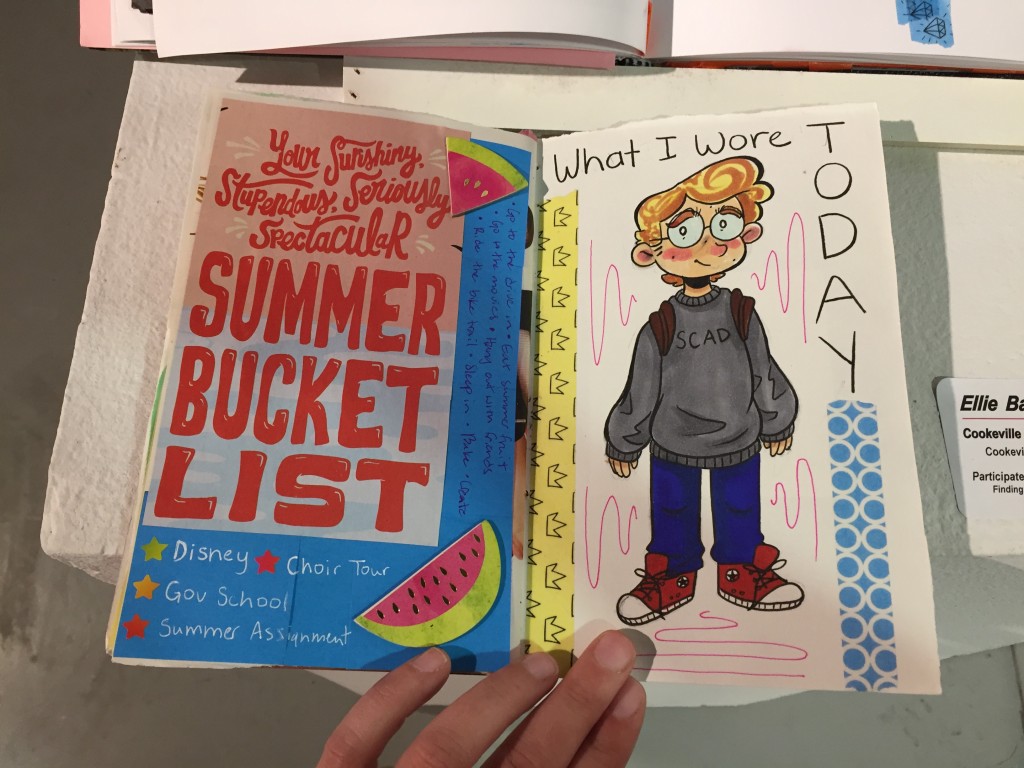 Your Sunshiny,
Stupendous, Seriously
Spectacular
SUMMER
BUCKET
LIST
• Go to the drive in • Eat summer fruit
• Go to the movies • Hang out with friends
• Ride the bike trail • Sleep in • Bake • Create
Disney
Choir Tour
Gov School
Summer Assignment
What I Wore
TODAY
SCAD
Ellie Ba
Cookeville
Cookevi
Participate
Finding